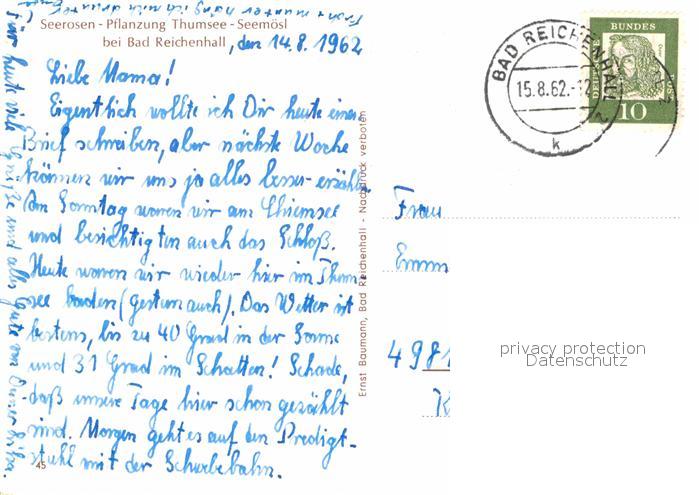 Seerosen - Pflanzung Thumsee - Seemösl
bei Bad Reichenhall, den 14.8.1962
Liebe Mama!
Eigentlich wollte ich Dir heute einen
Brief schreiben, aber nächste Woche
können wir uns ja alles besser erzählen
Am Sonntag waren wir am Chiemsee
und besichtigten auch das Schloß.
Heute waren wir wieder hier im Thum-
see baden (gestern auch). Das Wetter ist
bestens, bis zu 40 Grad in der Sonne
und 31 Grad im Schatten! Schade,
daß unsere Tage hier schon gezählt
sind. Morgen geht es auf den Predigt-
stuhl mit der Schwebebahn.
Für heute viele Grüße und alles Gute von Deiner
45
Ernst Baumann, Bad Reichenhall - Nachdruck verboten
BAD REICHENHALL
15.8.62.-12
k
DEUTSCHE BUNDESPOST
10
Frau
Emm
4981
K
privacy protection
Datenschutz